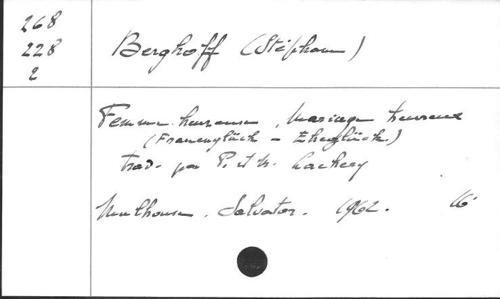 268
228
2
Berghoff (Stéphan)
Femme heureuse, Mariage heureux
(Frauenglück - Eheglück.)
trad. par P. et M. Lackery
Mulhouse. Salvator. 1962. 16°